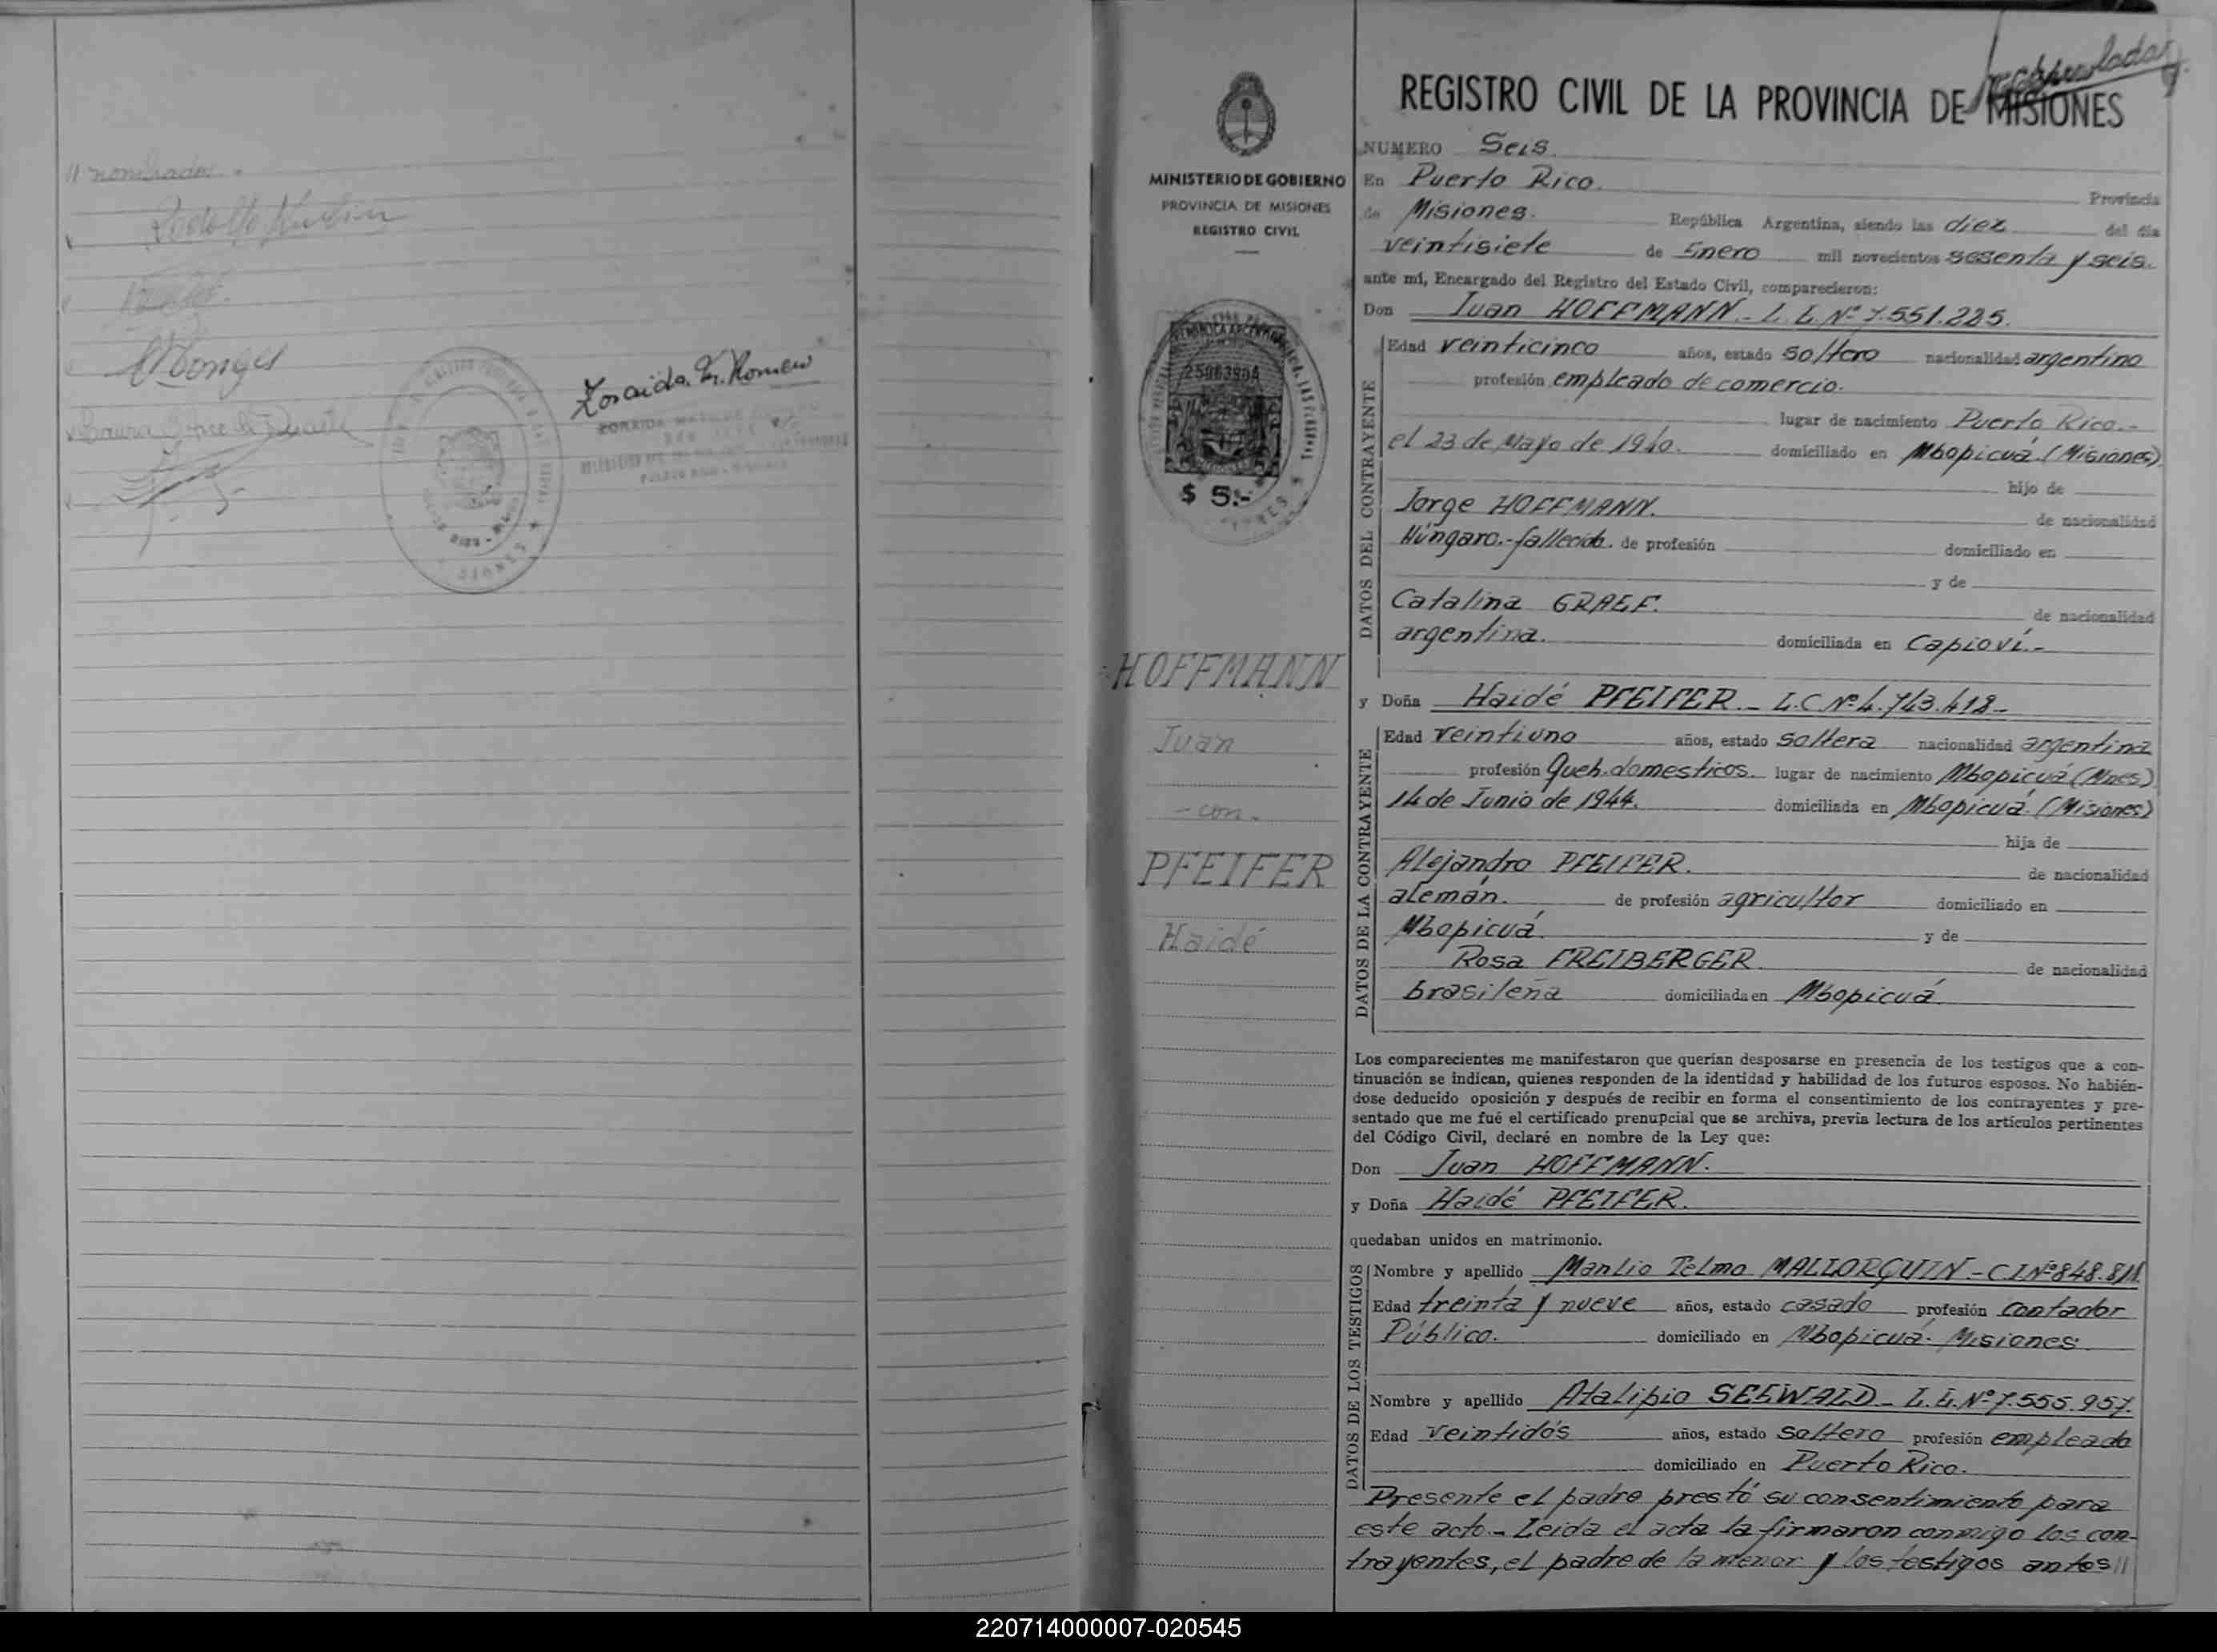 // nombrados.
Zoraida M. Romero
recopulado
REGISTRO CIVIL DE LA PROVINCIA DE MISIONES
MINISTERIO DE GOBIERNO
PROVINCIA DE MISIONES
REGISTRO CIVIL
$ 5.-
HOFFMANN
Juan
- con -
PFEIFER
Haidé
NUMERO Seis
En Puerto Rico. Provincia
de Misiones. República Argentina, siendo las diez del día
veintisiete de Enero mil novecientos sesenta y seis.
ante mí, Encargado del Registro del Estado Civil, comparecieron:
Don Juan HOFFMANN.- L.E. Nº 7.551.225.
DATOS DEL CONTRAYENTE
Edad veinticinco años, estado soltero nacionalidad argentino
profesión empleado de comercio.
lugar de nacimiento Puerto Rico.-
el 23 de Mayo de 1940. domiciliado en Mbopicuá (Misiones)
hijo de
Jorge HOFFMANN. de nacionalidad
Húngaro.-fallecido. de profesión domiciliado en
y de
Catalina GRAEF. de nacionalidad
argentina. domiciliada en Capioví.-
y Doña Haidé PFEIFER.- L.C. Nº 4.743.412-
DATOS DE LA CONTRAYENTE
Edad veintiuno años, estado soltera nacionalidad argentina
profesión Queh. domesticos. lugar de nacimiento Mbopicuá (Mnes)
14 de Junio de 1944. domiciliada en Mbopicuá. (Misiones)
hija de
Alejandro PFEIFER. de nacionalidad
alemán. de profesión agricultor domiciliado en
Mbopicuá. y de
Rosa FREIBERGER. de nacionalidad
brasileña domiciliada en Mbopicuá.
Los comparecientes me manifestaron que querían desposarse en presencia de los testigos que a con-
tinuación se indican, quienes responden de la identidad y habilidad de los futuros esposos. No habién-
dose deducido oposición y después de recibir en forma el consentimiento de los contrayentes y pre-
sentado que me fué el certificado prenupcial que se archiva, previa lectura de los artículos pertinentes
del Código Civil, declaré en nombre de la Ley que:
Don Juan HOFFMANN.
y Doña Haidé PFEIFER.
quedaban unidos en matrimonio.
DATOS DE LOS TESTIGOS
Nombre y apellido Manlio Telmo MALLORQUIN - C.I.Nº 848.811.
Edad treinta y nueve años, estado casado profesión Contador
Público. domiciliado en Mbopicuá. Misiones.
Nombre y apellido Atalipio SEEWALD - L.E. Nº 7.555.957.
Edad veintidós años, estado soltero profesión empleado
domiciliado en Puerto Rico.
Presente el padre prestó su consentimiento para
este acto.- Leida el acta la firmaron conmigo los con-
trayentes, el padre de la menor y los testigos antes //
220714000007-020545